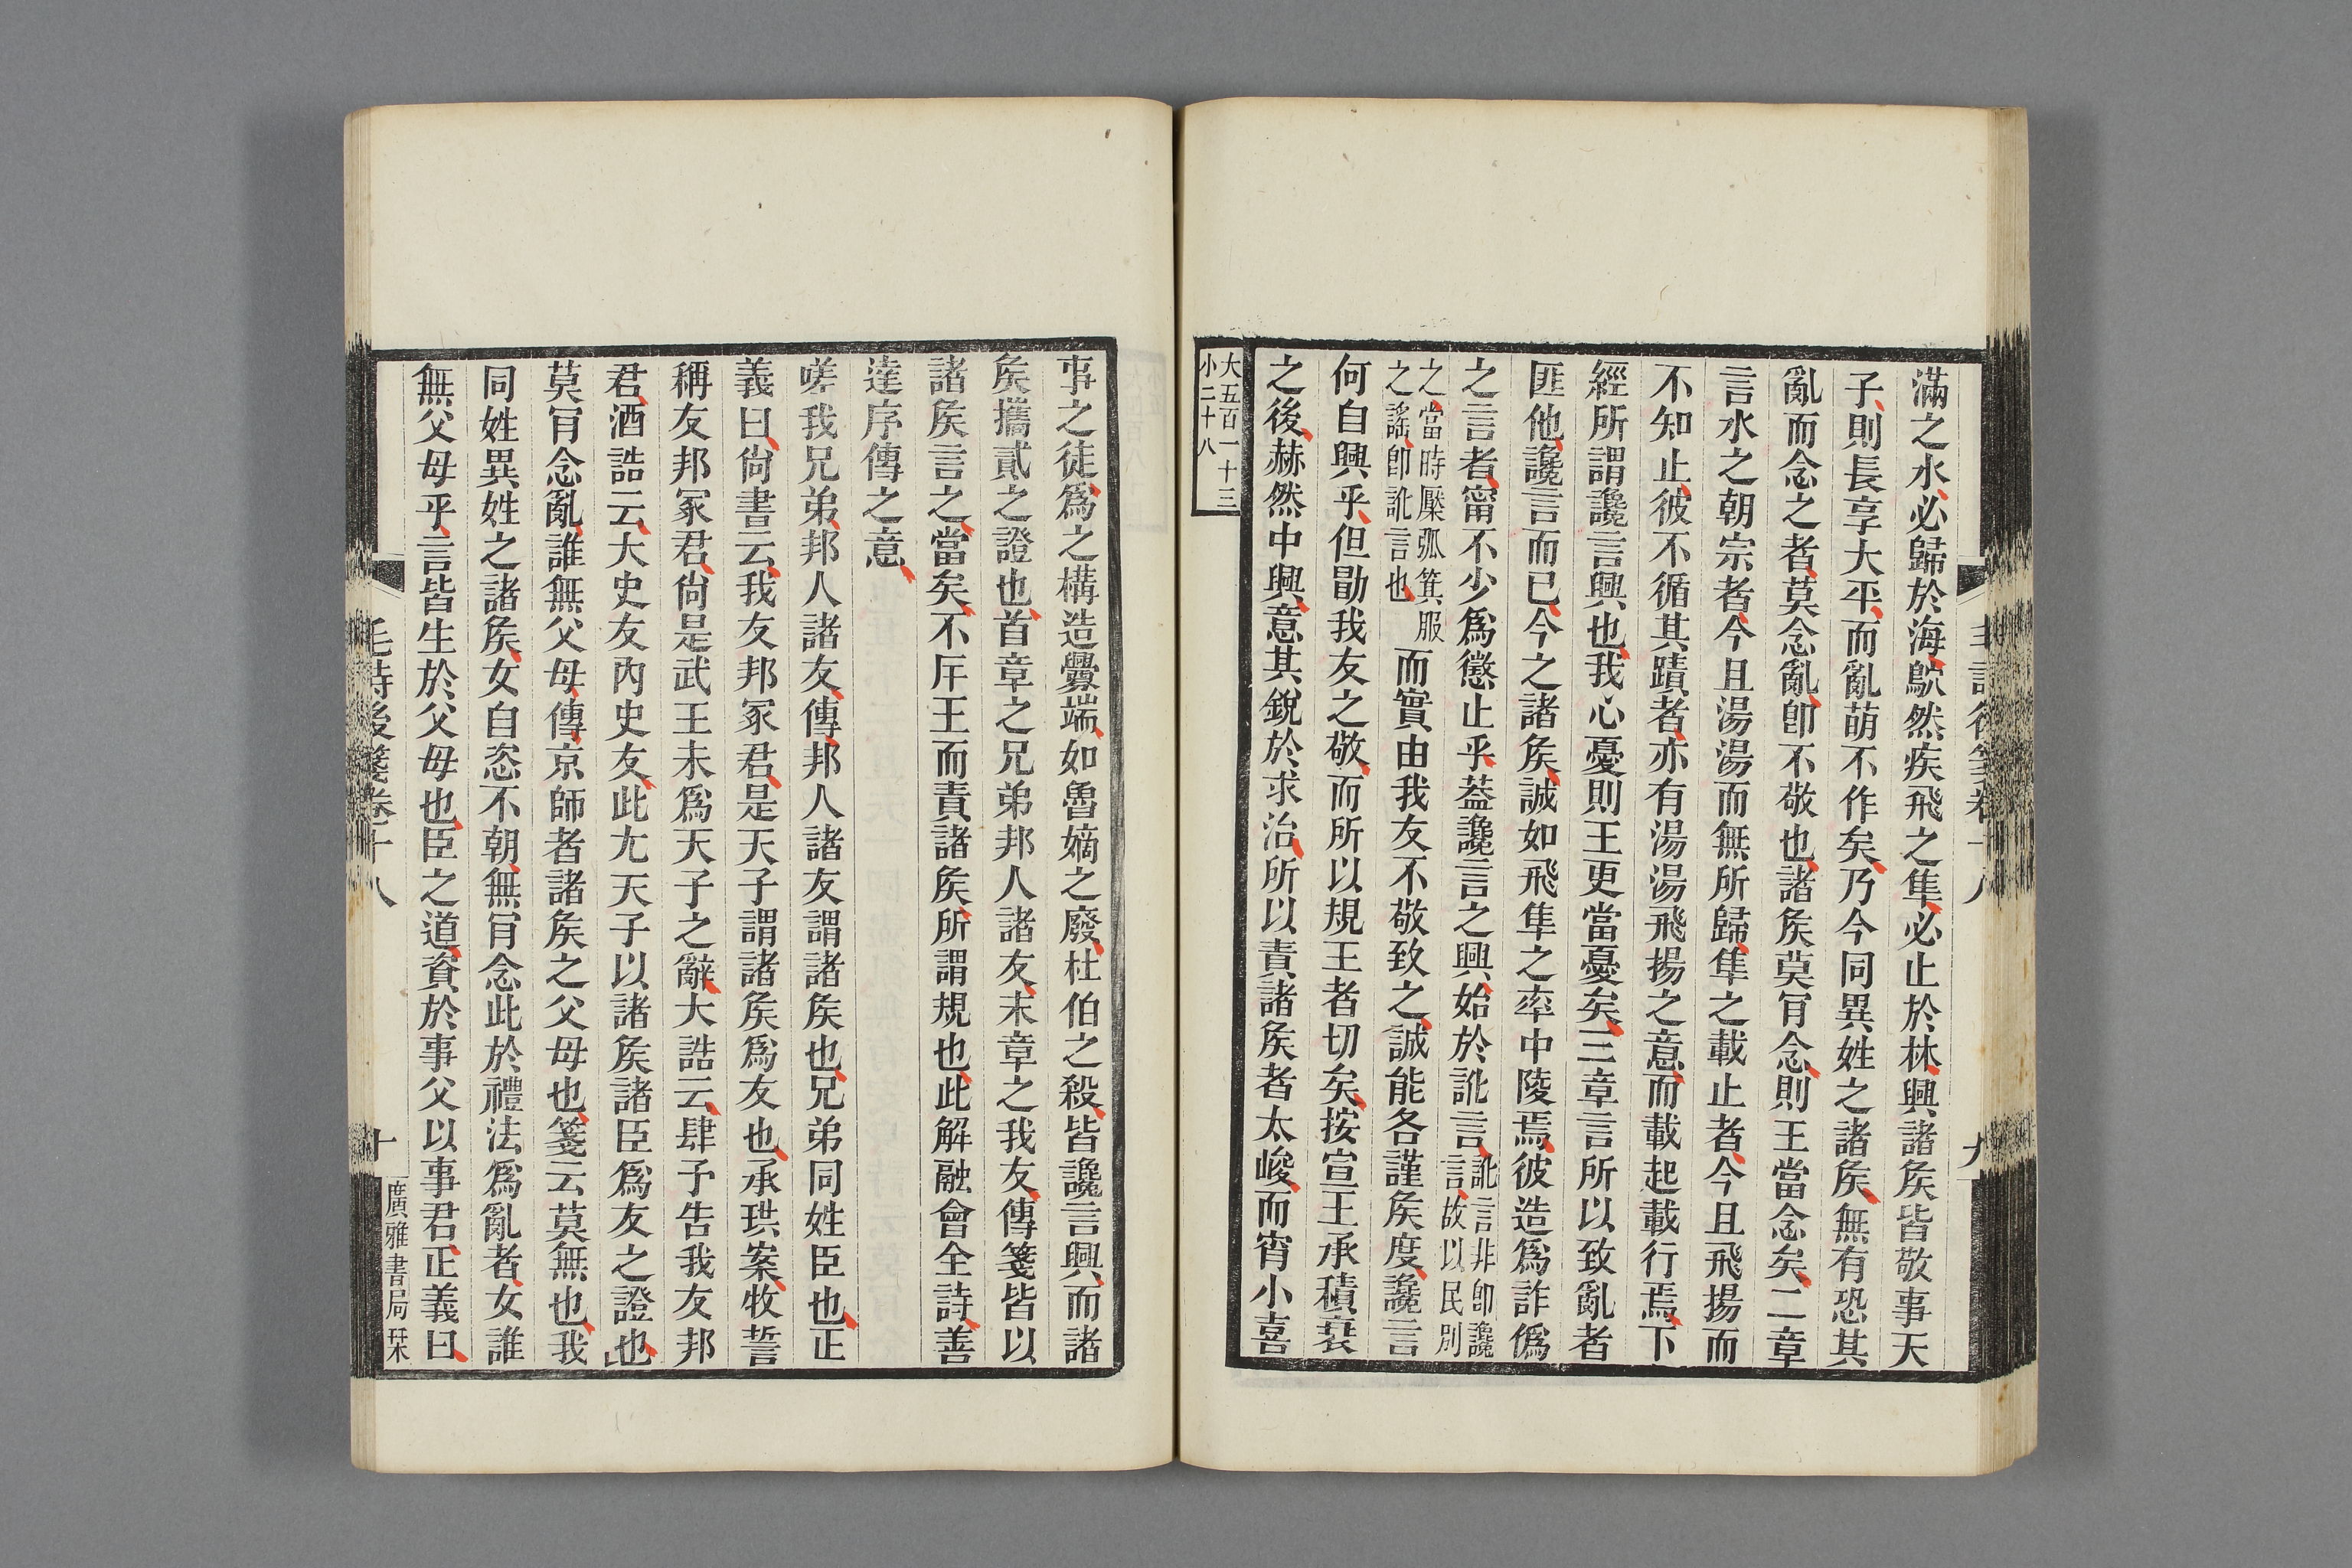 滿之水必歸於海鴥然疾飛之隼必止於林興諸矦皆敬事天
子則長享大平而亂萌不作矣乃今同異姓之諸矦無有恐其
亂而念之者莫念亂卽不敬也諸矦莫肎念則王當念矣二章
言水之朝宗者今且湯湯而無所歸隼之載止者今且飛揚而
不知止彼不循其蹟者亦有湯湯飛揚之意而載起載行焉下
經所謂讒言興也我心憂則王更當憂矣三章言所以致亂者
匪他讒言而已今之諸矦誠如飛隼之率中陵焉彼造爲詐僞
之言者甯不少爲懲止乎葢讒言之興始於訛言訛言非卽讒
言故以民別
之當時檿弧箕服
之謠卽訛言也而實由我友不敬致之誠能各謹矦度讒言
何自興乎但勖我友之敬而所以規王者切矣按宣王承積衰
之後赫然中興意其銳於求治所以責諸矦者太峻而宵小喜
大五百一十三
小二十八
毛詩後箋卷十八
九
事之徒爲之構造釁端如魯嫡之廢杜伯之殺皆讒言興而諸
矦攜貳之證也首章之兄弟邦人諸友末章之我友傳箋皆以
諸矦言之當矣不斥王而責諸矦所謂規也此解融會全詩善
達序傳之意
嗟我兄弟邦人諸友傳邦人諸友謂諸矦也兄弟同姓臣也正
義曰尙書云我友邦冢君是天子謂諸矦爲友也承珙案牧誓
稱友邦冢君尙是武王未爲天子之辭大誥云肆予告我友邦
君酒誥云大史友內史友此尤天子以諸矦諸臣爲友之證也
莫肎念亂誰無父母傳京師者諸矦之父母也箋云莫無也我
同姓異姓之諸矦女自恣不朝無肎念此於禮法爲亂者女誰
無父母乎言皆生於父母也臣之道資於事父以事君正義曰
毛詩後箋卷十八
十
廣雅書局栞